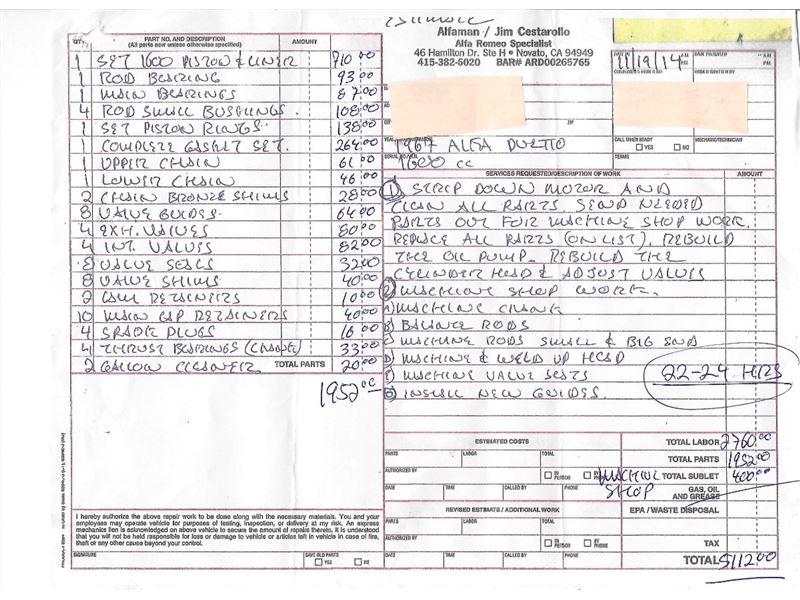 Alfaman / Jim Cestarollo
Alfa Romeo Specialist
46 Hamilton Dr. Ste H • Novato, CA 94949
415-382-6020 BAR# ARD00265765
11/19/14
PART NO. AND DESCRIPTION
(All parts new unless otherwise specified)
AMOUNT
QTY.
1 SET 1600 PISTON & LINER 710.00
1 ROD BEARING 93.00
1 MAIN BEARINGS 87.00
4 ROD SMALL BUSHINGS. 108.00
1 SET PISTON RINGS. 138.00
1 COMPLETE GASKET SET. 264.00
1 UPPER CHAIN 61.00
1 LOWER CHAIN 46.00
2 CHAIN BRONZE SHIMS 28.00
8 VALVE GUIDES. 64.00
4 EXH. VALVES 80.00
4 INT. VALVES 82.00
8 VALVE SEALS 32.00
8 VALVE SHIMS 40.00
2 CAM RETAINERS 10.00
10 MAIN CAP RETAINERS 40.00
4 SPARK PLUGS 16.00
4 THRUST BEARINGS (CRANK) 33.00
2 GALLON CLEANER TOTAL PARTS 20.00
1952.00
1967 ALFA DUETTO
1600 cc
CALL WHEN READY
YES NO
MECHANIC/TECHNICIAN
TERMS
SERVICES REQUESTED/DESCRIPTION OF WORK
AMOUNT
1 STRIP DOWN MOTOR AND
CLEAN ALL PARTS, SEND NEEDED
PARTS OUT FOR MACHINE SHOP WORK.
REPLACE ALL PARTS (ON LIST), REBUILD
THE OIL PUMP. REBUILD THE
CYLINDER HEAD & ADJUST VALVES
2 MACHINE SHOP WORK.
A) MACHINE CRANK
B) BALANCE RODS
C) MACHINE RODS SMALL & BIG END
D) MACHINE & WELD UP HEAD
MACHINE VALVE SEATS
INSTALL NEW GUIDES.
22-24 HRS
ESTIMATED COSTS
PARTS LABOR TOTAL
AUTHORIZED BY IN PERSON BY PHONE
DATE TIME CALLED BY PHONE
REVISED ESTIMATE / ADDITIONAL WORK
PARTS LABOR TOTAL
AUTHORIZED BY IN PERSON BY PHONE
DATE TIME CALLED BY PHONE
TOTAL LABOR 2760.00
TOTAL PARTS 1952.00
MACHINE SHOP TOTAL SUBLET 400.00
GAS, OIL AND GREASE
EPA / WASTE DISPOSAL
TAX
TOTAL 5112.00
I hereby authorize the above repair work to be done along with the necessary materials. You and your
employees may operate vehicle for purposes of testing, inspection, or delivery at my risk. An express
mechanics lien is acknowledged on above vehicle to secure the amount of repairs thereto. It is understood
that you will not be held responsible for loss or damage to vehicle or articles left in vehicle in case of fire,
theft or any other cause beyond your control.
SIGNATURE
SAVE OLD PARTS
YES NO